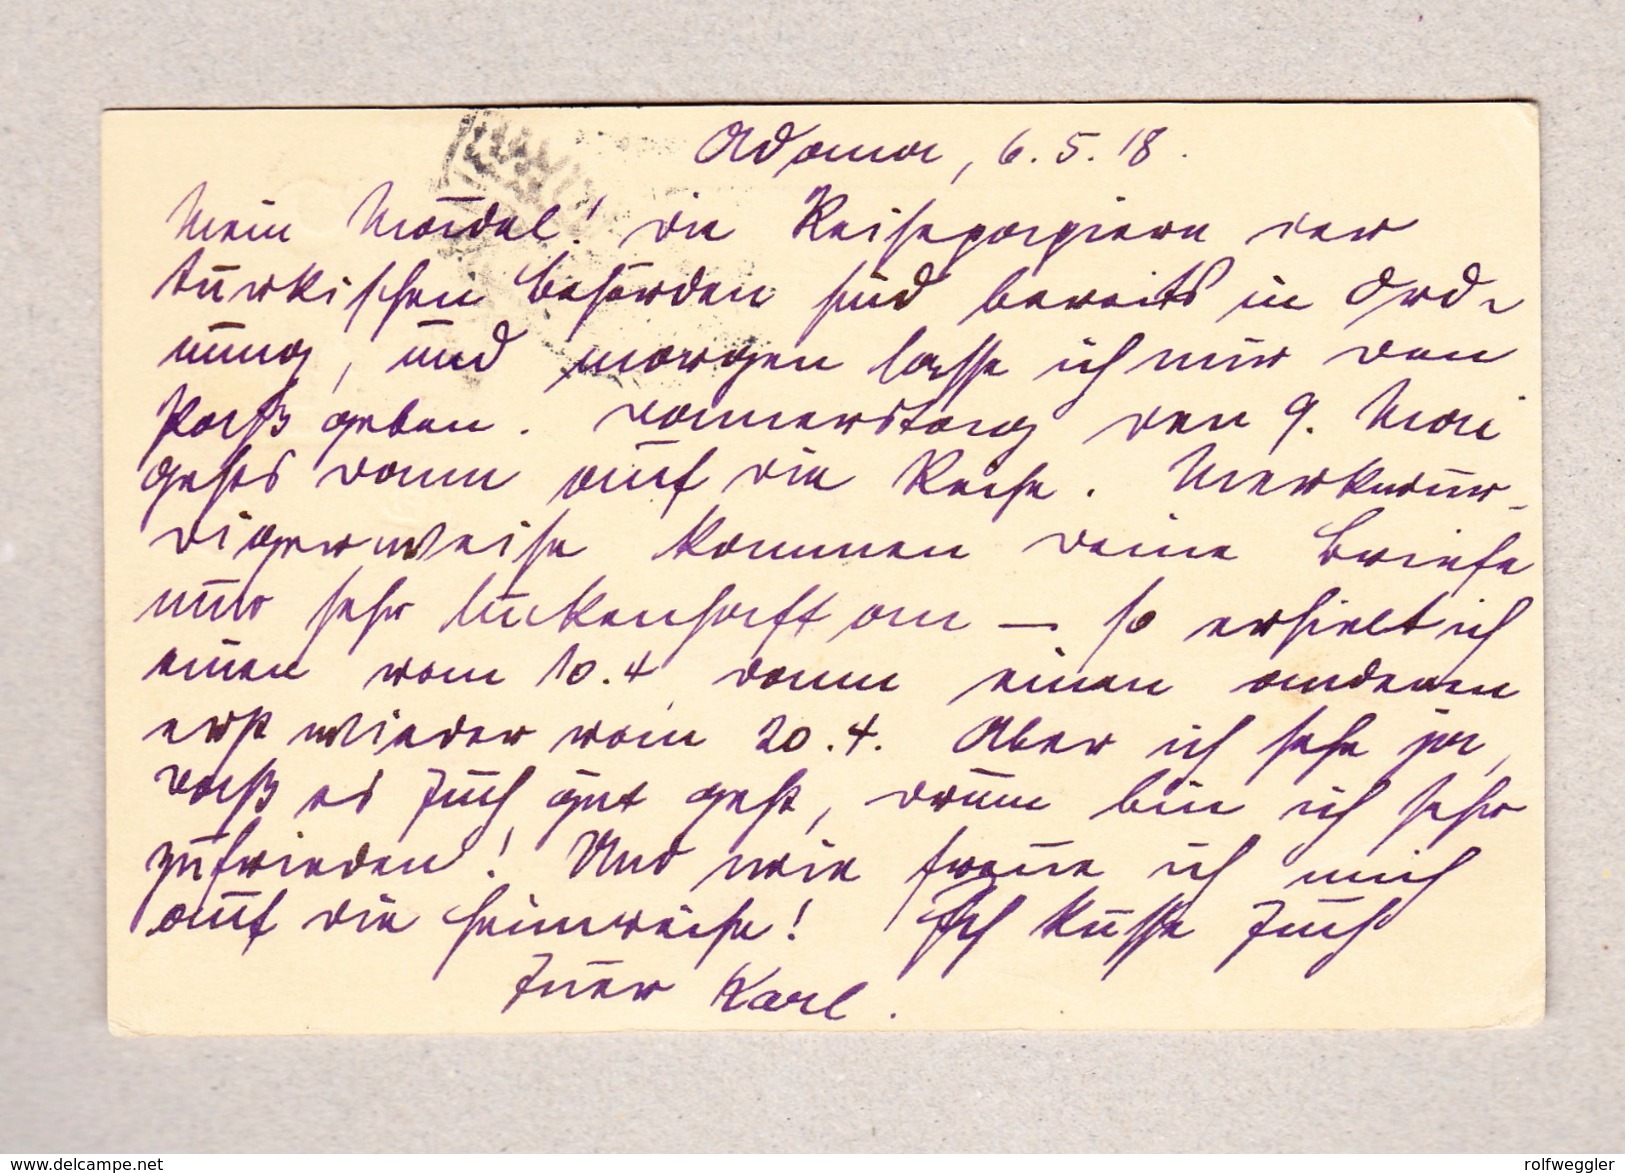 Adana, 6.5.18.
Mein Mädel! Die Reisepapiere der
türkischen Behörden sind bereits in Ord-
nung, und morgen lasse ich mir den
Paß geben. Donnerstag den 9. Mai
gehts dann auf die Reise. Merkwür-
digerweise kommen deine Briefe
nur sehr lückenhaft an — so erhielt ich
einen vom 10.4 dann einen anderen
erst wieder vom 20.4. Aber ich sehe ja,
daß es Euch gut geht, drum bin ich sehr
zufrieden! Und wie freue ich mich
auf die Heimreise! Ich küsse Euch
Euer Karl.
delcampe.net
rolfweggler